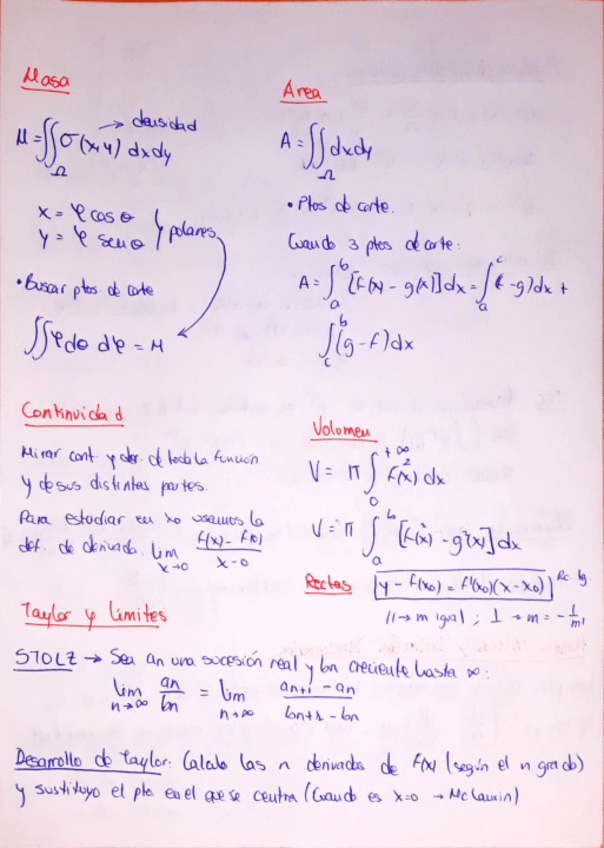 Masa
M = ∬_Ω σ(x,y) dxdy → densidad
x = φ cos θ
y = φ sen θ } polares
• Buscar ptos. de corte
∬ φ dθ dφ = M
Area
A = ∬_Ω dxdy
• Ptos de corte.
Cuando 3 ptos de corte:
A = ∫_a^b [f(x) - g(x)] dx = ∫_a^c (f - g) dx +
∫_c^b (g - f) dx
Continuidad
Mirar cont. y der. de toda la función
y de sus distintas partes.
Para estudiar en x0 usamos la
def. de derivada. lim x→0 (f(x) - f(0))/(x - 0)
Volumen
V = π ∫_0^{+∞} f²(x) dx
V = π ∫_a^b [f²(x) - g²(x)] dx
Rectas y - f(x0) = f'(x0)(x - x0) Rc. tg.
// → m igual ; ⊥ → m = -1/m'
Taylor y límites
STOLZ → Sea an una sucesión real y bn creciente hasta ∞:
lim n→∞ an/bn = lim n→∞ (an+1 - an)/(bn+1 - bn)
Desarrollo de Taylor: Calculo las n derivadas de f(x) (según el n grado)
y sustituyo el pto. en el que se centra (Cuando es x=0 → McLaurin)